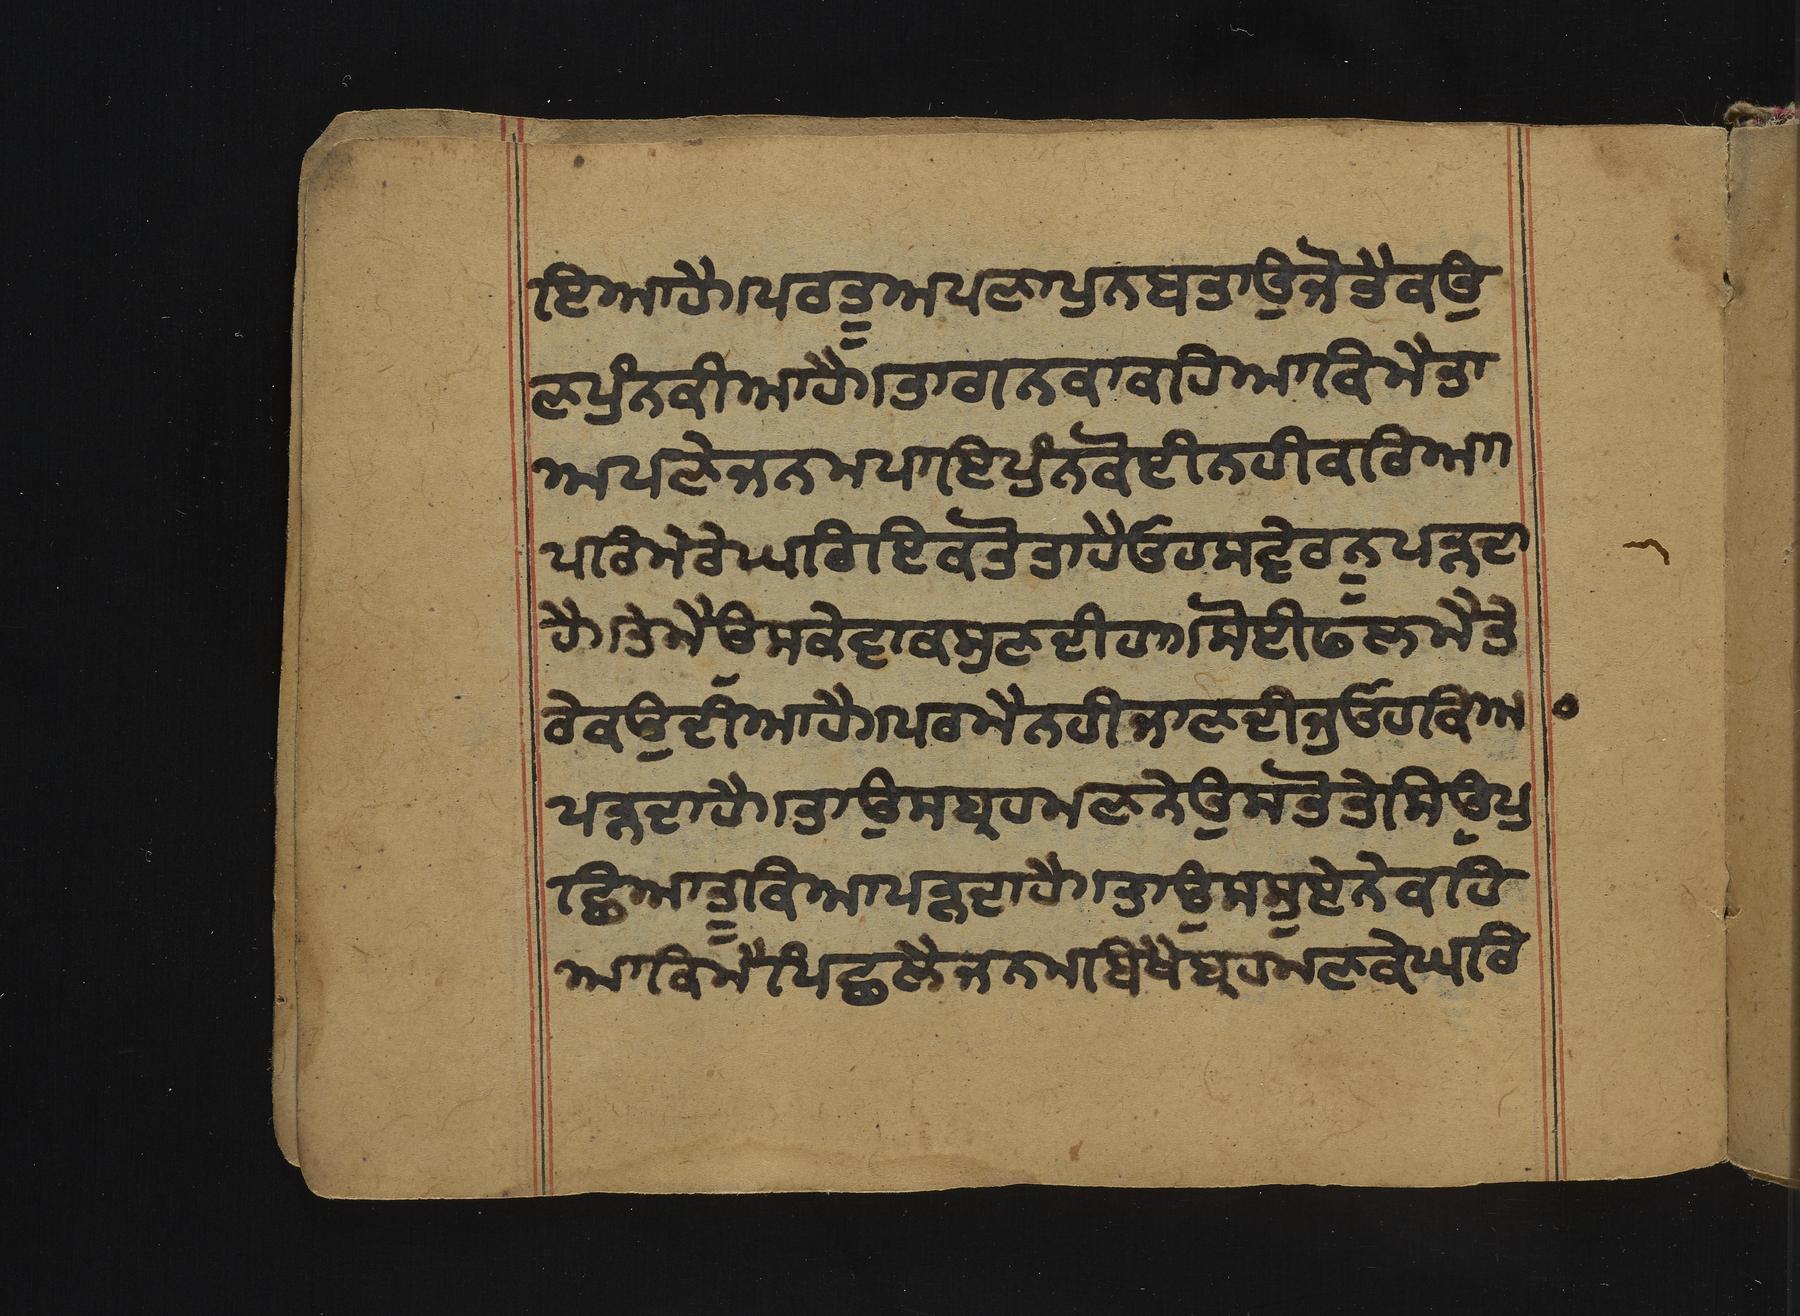 ਇਆਹੈ।ਪਰਤੂਅਪਣਾਪੁਨਬਤਾਉਜੋਤੈਕਉ
ਣਪੁੰਨਕੀਆਹੈ।ਤਾਗਨਕਾਕਹਿਆਕਿਮੈਤਾ
ਅਪਣੇਜਨਮਪਾਇਪੁੰਨਕੋਈਨਹੀਕਰਿਆ
ਪਰਿਮੇਰੇਘਰਿਇਕਤੋਤਾਹੈਓਹਸਵੇਰਨੂਪੜ੍ਹਦਾ
ਹੈ।ਤੇਮੈਉਸਕੇਵਾਕਸੁਣਦੀਹਾ।ਸੋਈਫਲਮੈਤੇ
ਰੇਕਉਦੀਆਹੈ।ਪਰਮੈਨਹੀਜਾਣਦੀਜੁਓਹਕਿਆ
ਪੜ੍ਹਦਾਹੈ।ਤਾਉਸਬ੍ਰਹਮਣਨੇਉਸਤੋਤੇਸਿਉਪੁ
ਛਿਆਤੂਕਿਆਪੜ੍ਹਦਾਹੈ।ਤਾਉਸਸੂਏਨੇਕਹਿ
ਆਕਿਮੈਪਿਛਲੈਜਨਮਬਿਖੈਬ੍ਰਹਮਣਕੇਘਰਿ